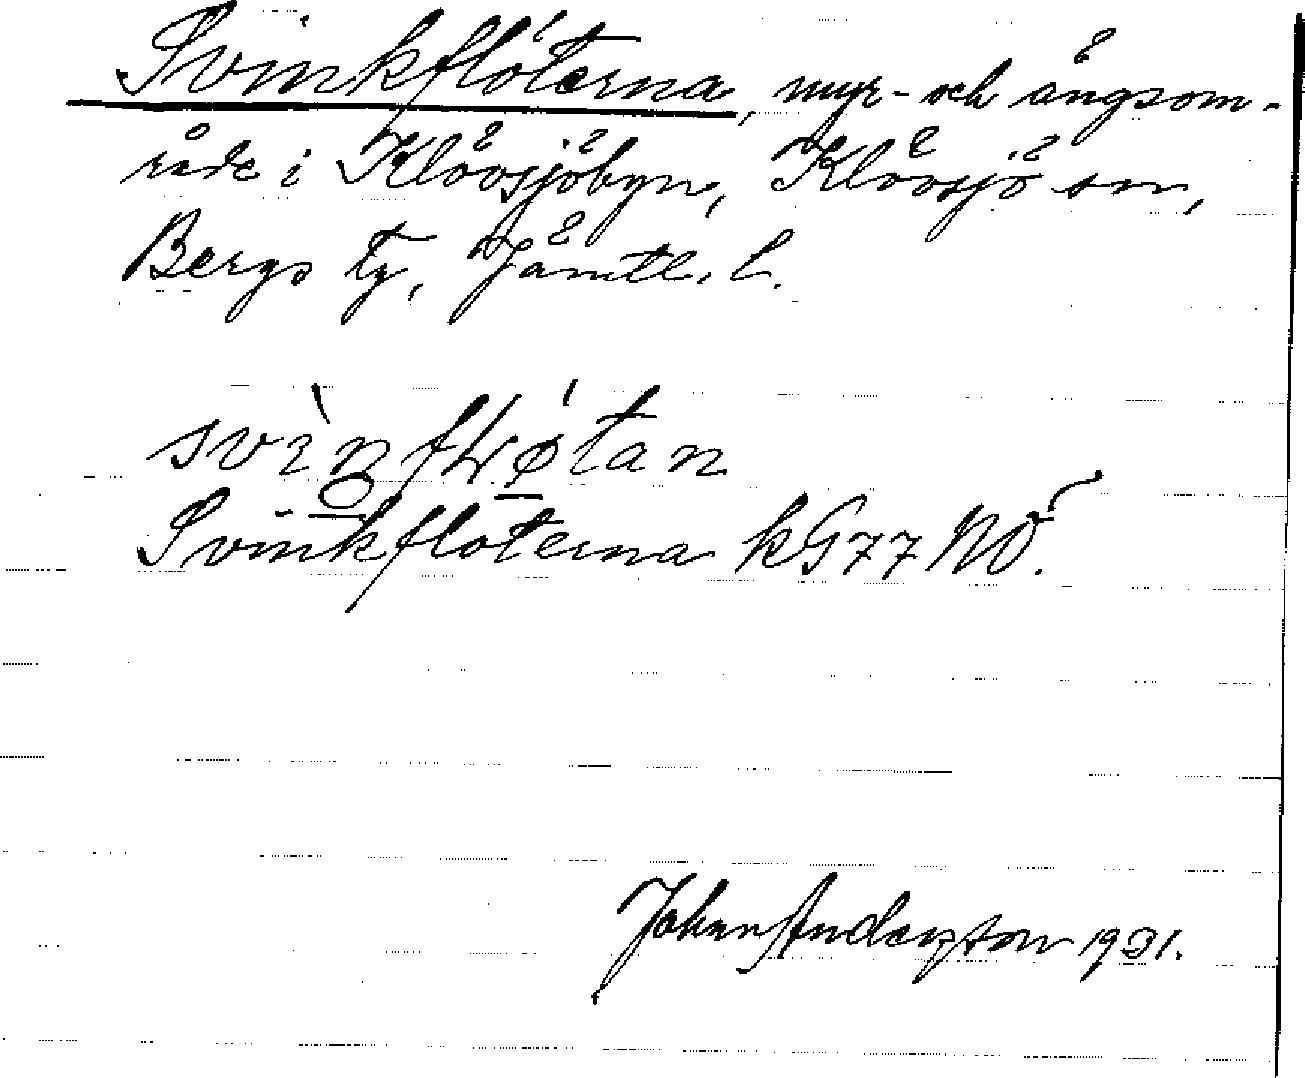 Svinkflöterna, myr- och ängsom-
råde i Klövsjöbyn, Klövsjö sn,
Bergs tg, Jämtl. l.
Svinkfloterna kG77 NO.
Johan Anderzton 1921.